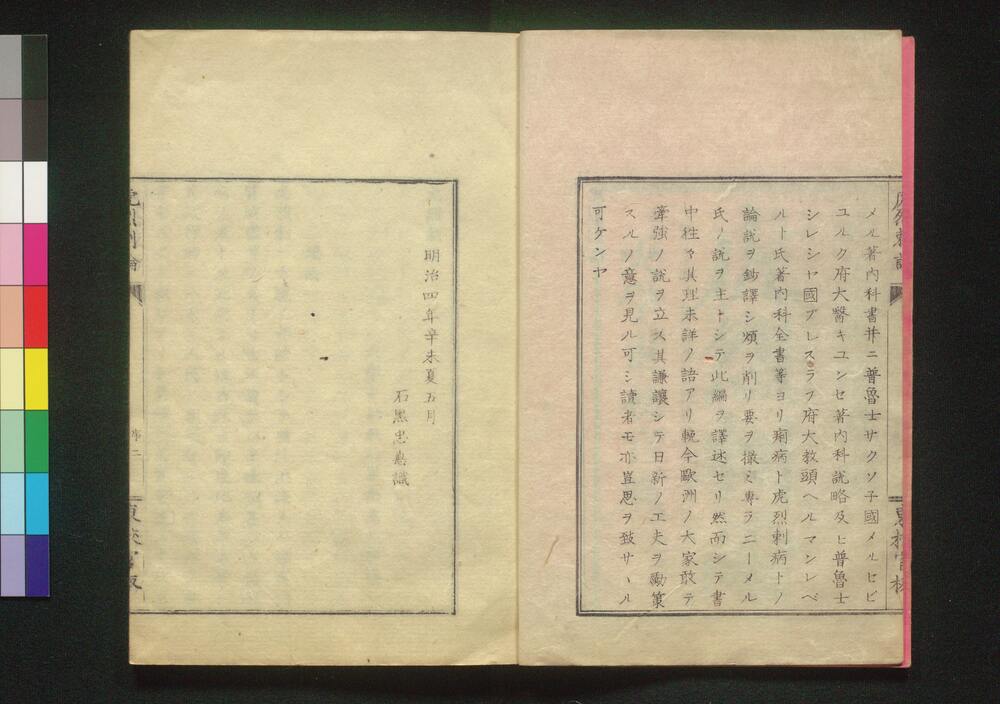 メル著内科書并ニ普魯士サクソ子國メルセビ
ユルク府大醫キユンセ著内科説略及ヒ普魯士
シレシヤ國ブレスラフ府大教頭ヘルマンレベ
ルト氏著内科全書等ヨリ痢病ト虎烈剌病トノ
論説ヲ鈔譯シ煩ヲ削リ要ヲ撮ミ專ラニーメル
氏ノ説ヲ主トシテ此編ヲ譯述セリ然而シテ書
中往々其理未詳ノ語アリ輓今歐洲ノ大家敢テ
牽強ノ説ヲ立ス其謙讓シテ日新ノ工夫ヲ勵策
スルノ意ヲ見ル可シ讀者モ亦豈思ヲ致サヽル
可ケンヤ
明治四年辛未夏五月
石黑忠悳識